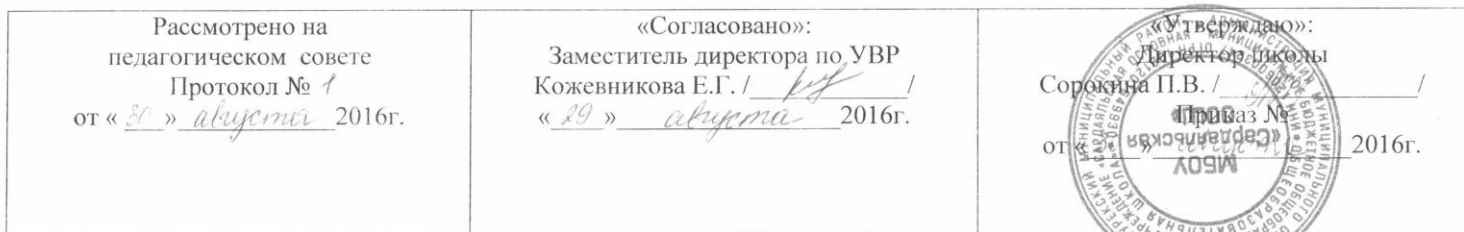 Рассмотрено на
педагогическом совете
Протокол № 1
от « 30 » августа 2016г.
«Согласовано»:
Заместитель директора по УВР
Кожевникова Е.Г. / /
« 29 » августа 2016г.
«Утверждаю»:
Директор школы
Сорокина П.В. / /
Приказ №
от « » 2016г.
МБОУ
«Сардаяльская
ООШ»